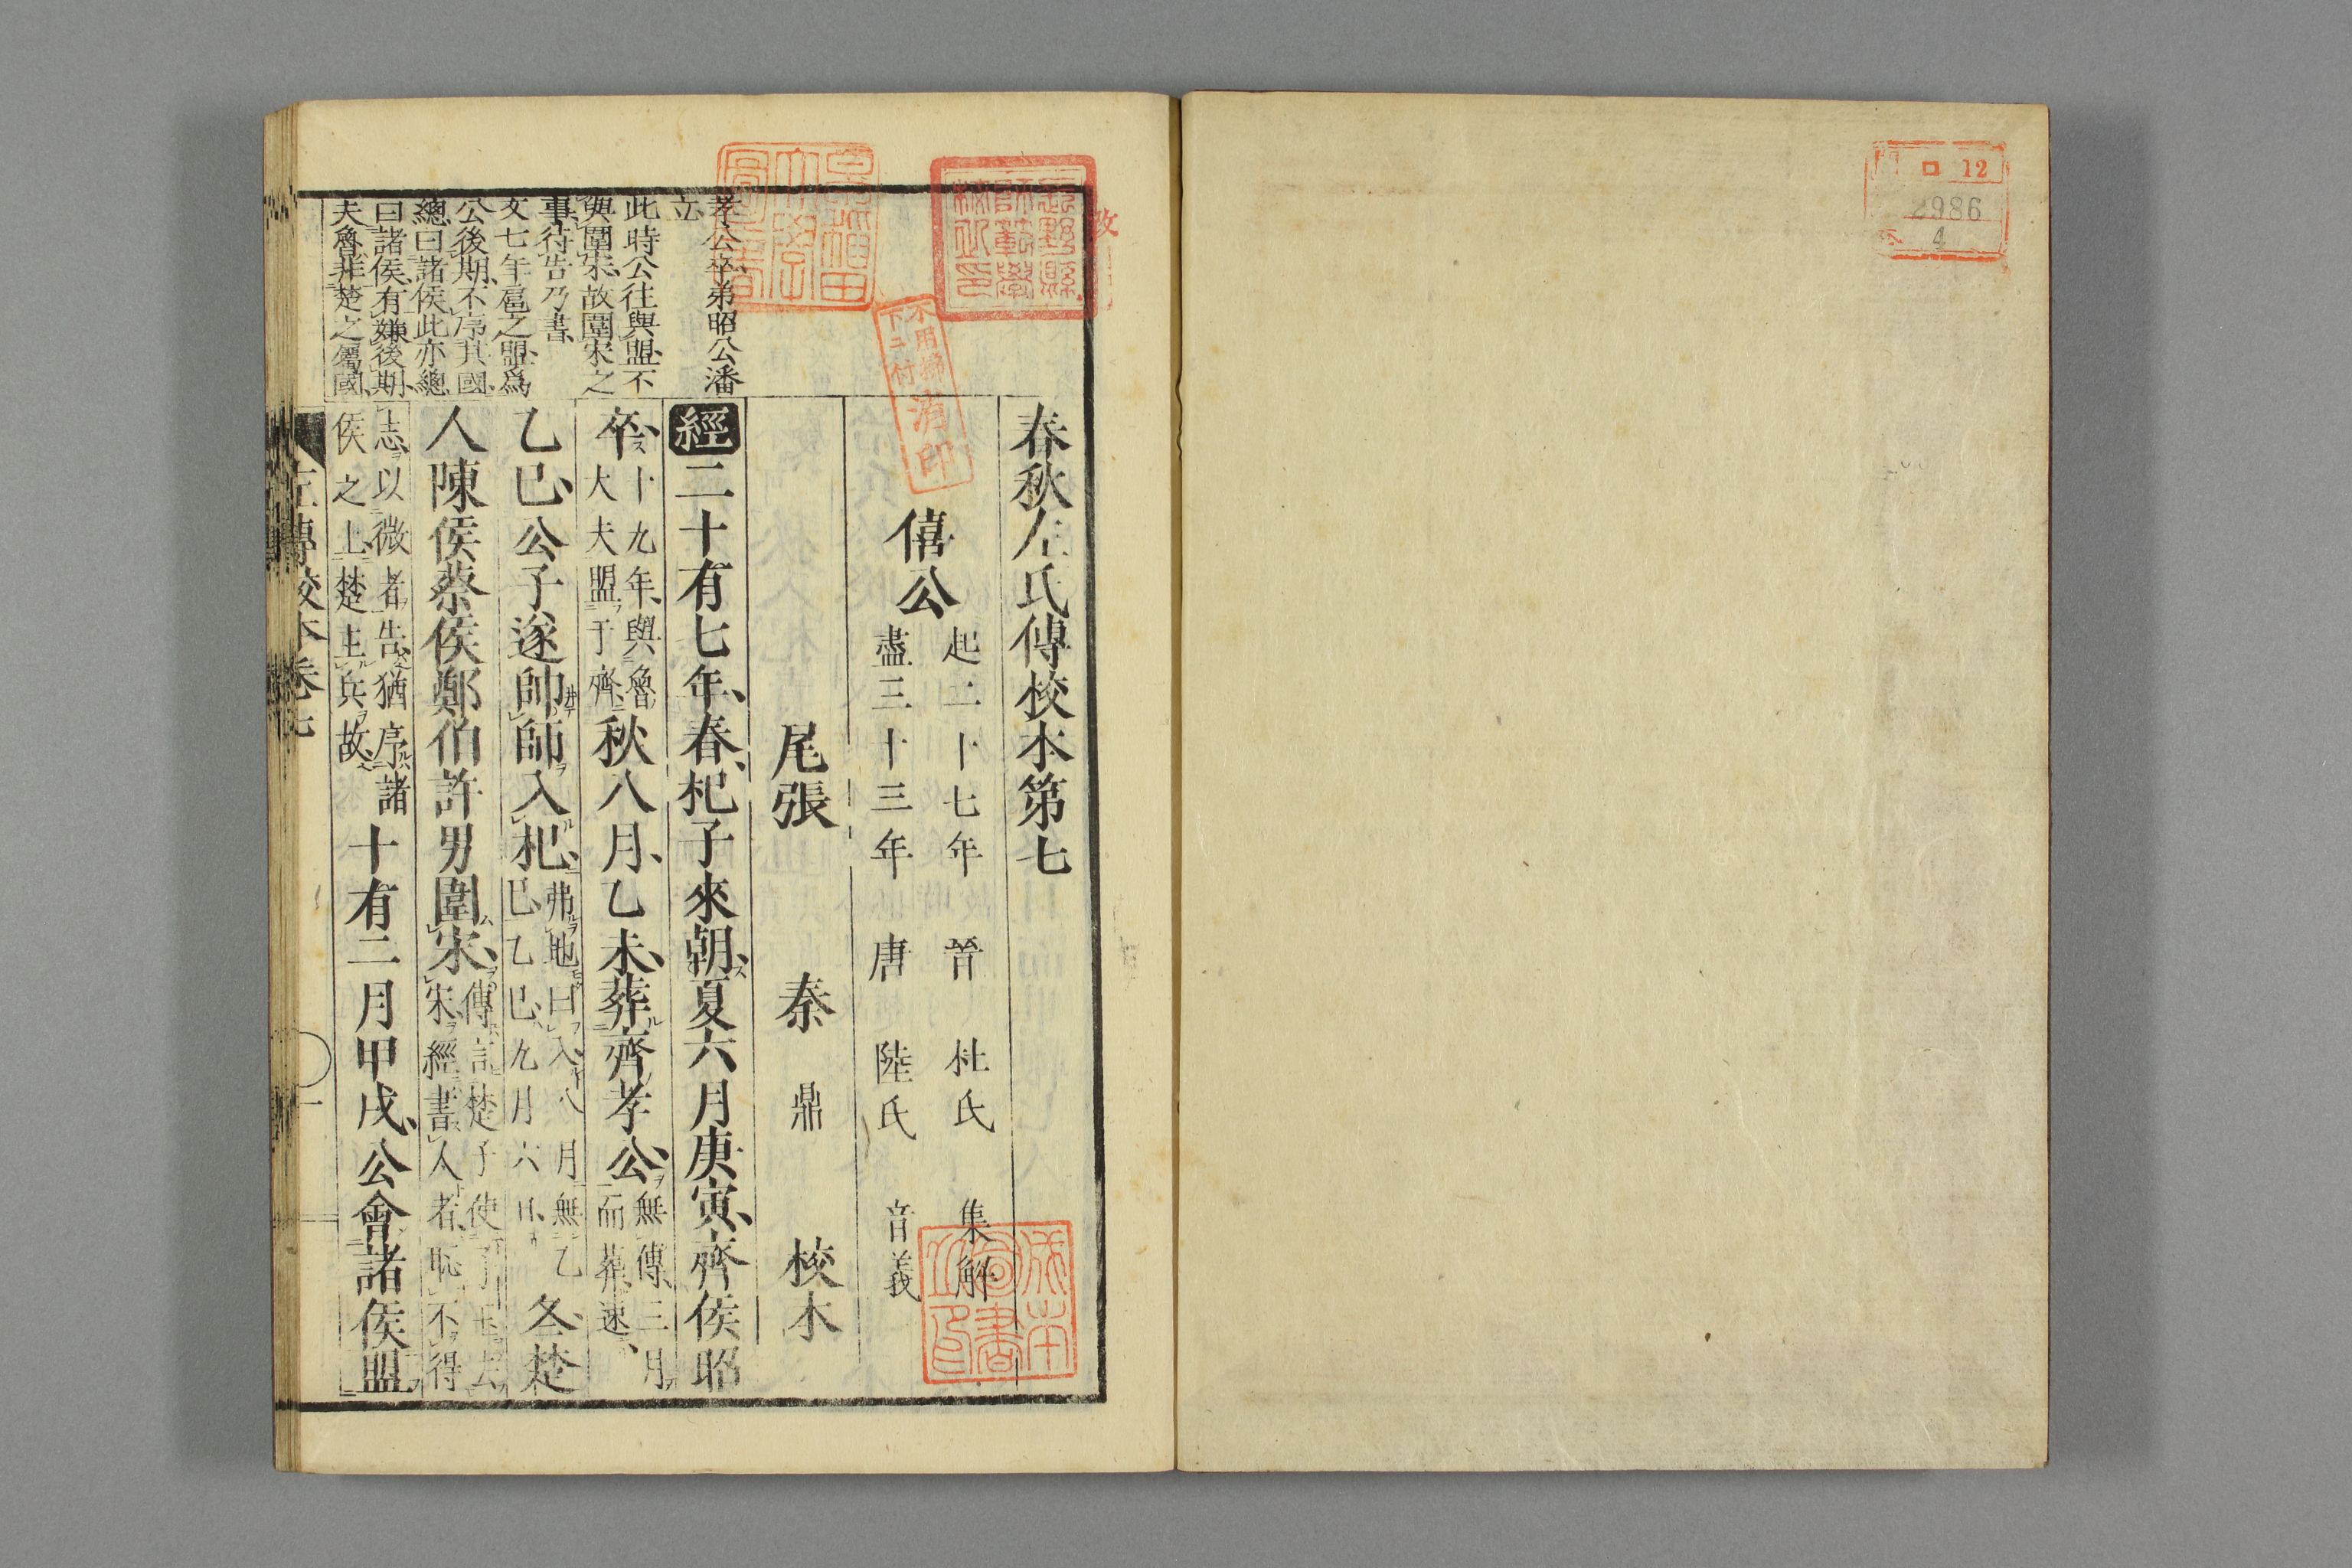 門 ロ 12
2986
4
孝公卒弟昭公潘
立
此時公往與盟不
與圍宋故圍宋之
事待告乃書
文七年扈之盟爲
公後期不序其國
總曰諸侯此亦總
曰諸侯有嫌後期
夫魯非楚之屬國
不用ニ付
消印
春秋左氏傳校本第七
僖公
起二十七年 晉 杜氏 集解
盡三十三年 唐 陸氏 音義
尾張 秦 鼎 校本
經二十有七年春杞子來朝夏六月庚寅齊侯昭
卒
十九年與魯
大夫盟于齊
秋八月乙未葬齊孝公
無傳三月
而葬速
乙巳公子遂帥師入杞
弗地曰入八月無乙
巳乙巳九月六日
冬楚
人陳侯蔡侯鄭伯許男圍宋
傳言楚子使子玉去
宋經書人者恥不得
志以微者告猶序諸
侯之上楚主兵故
十有二月甲戌公會諸侯盟
左傳校本卷七
一